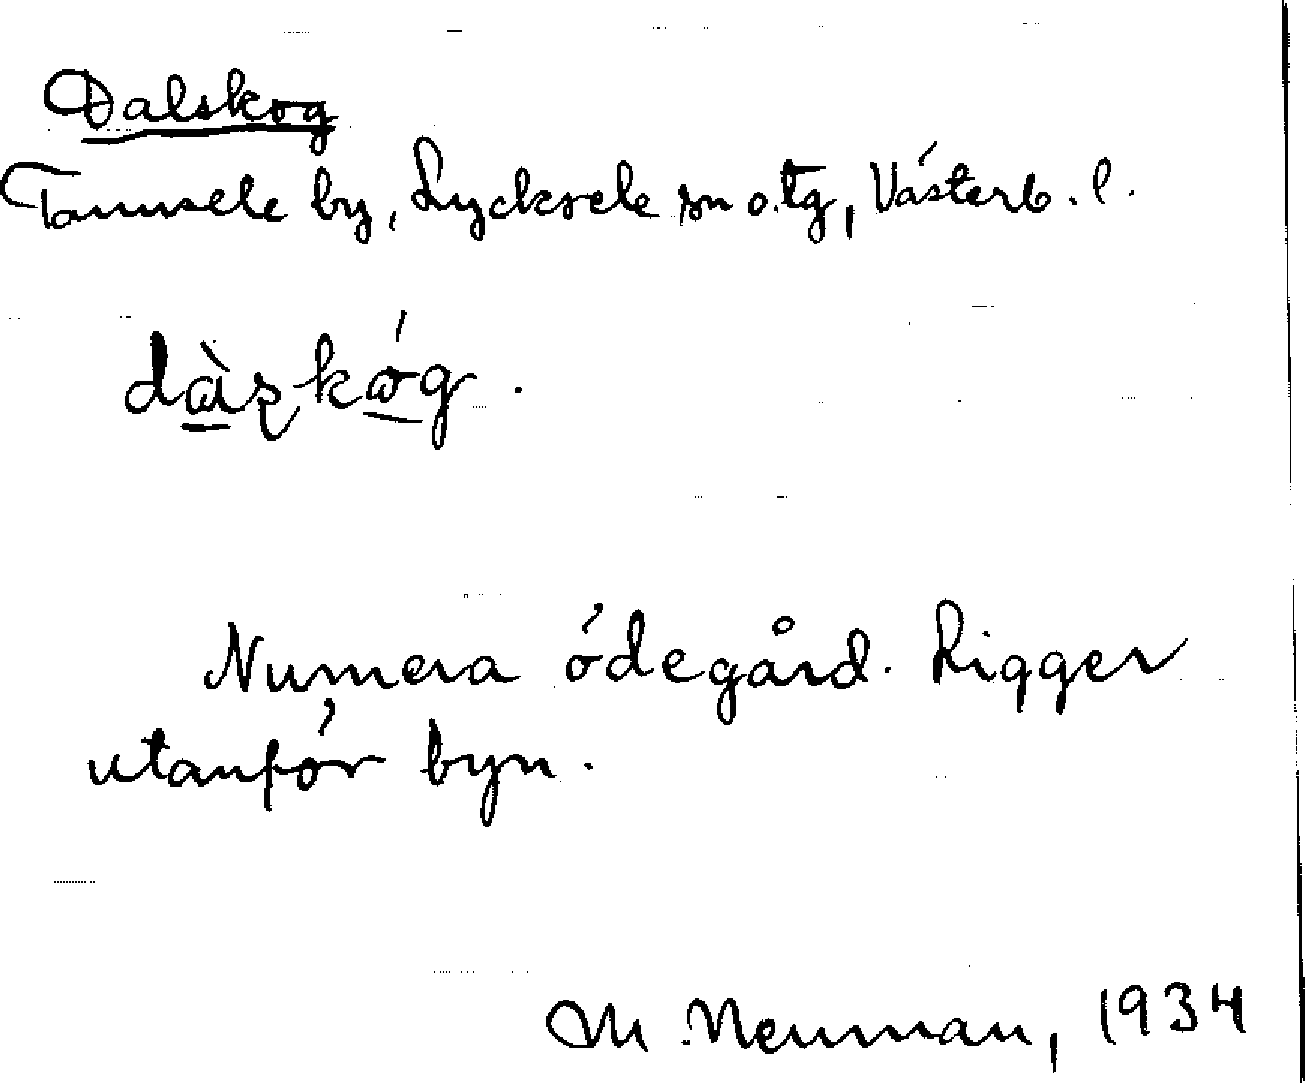 Dalskog
Tannsele by, Lycksele sn o. tg, Västerb. l.
dàʂkóg.
Numera ödegård. Ligger
utanför byn.
M. Neuman, 1934